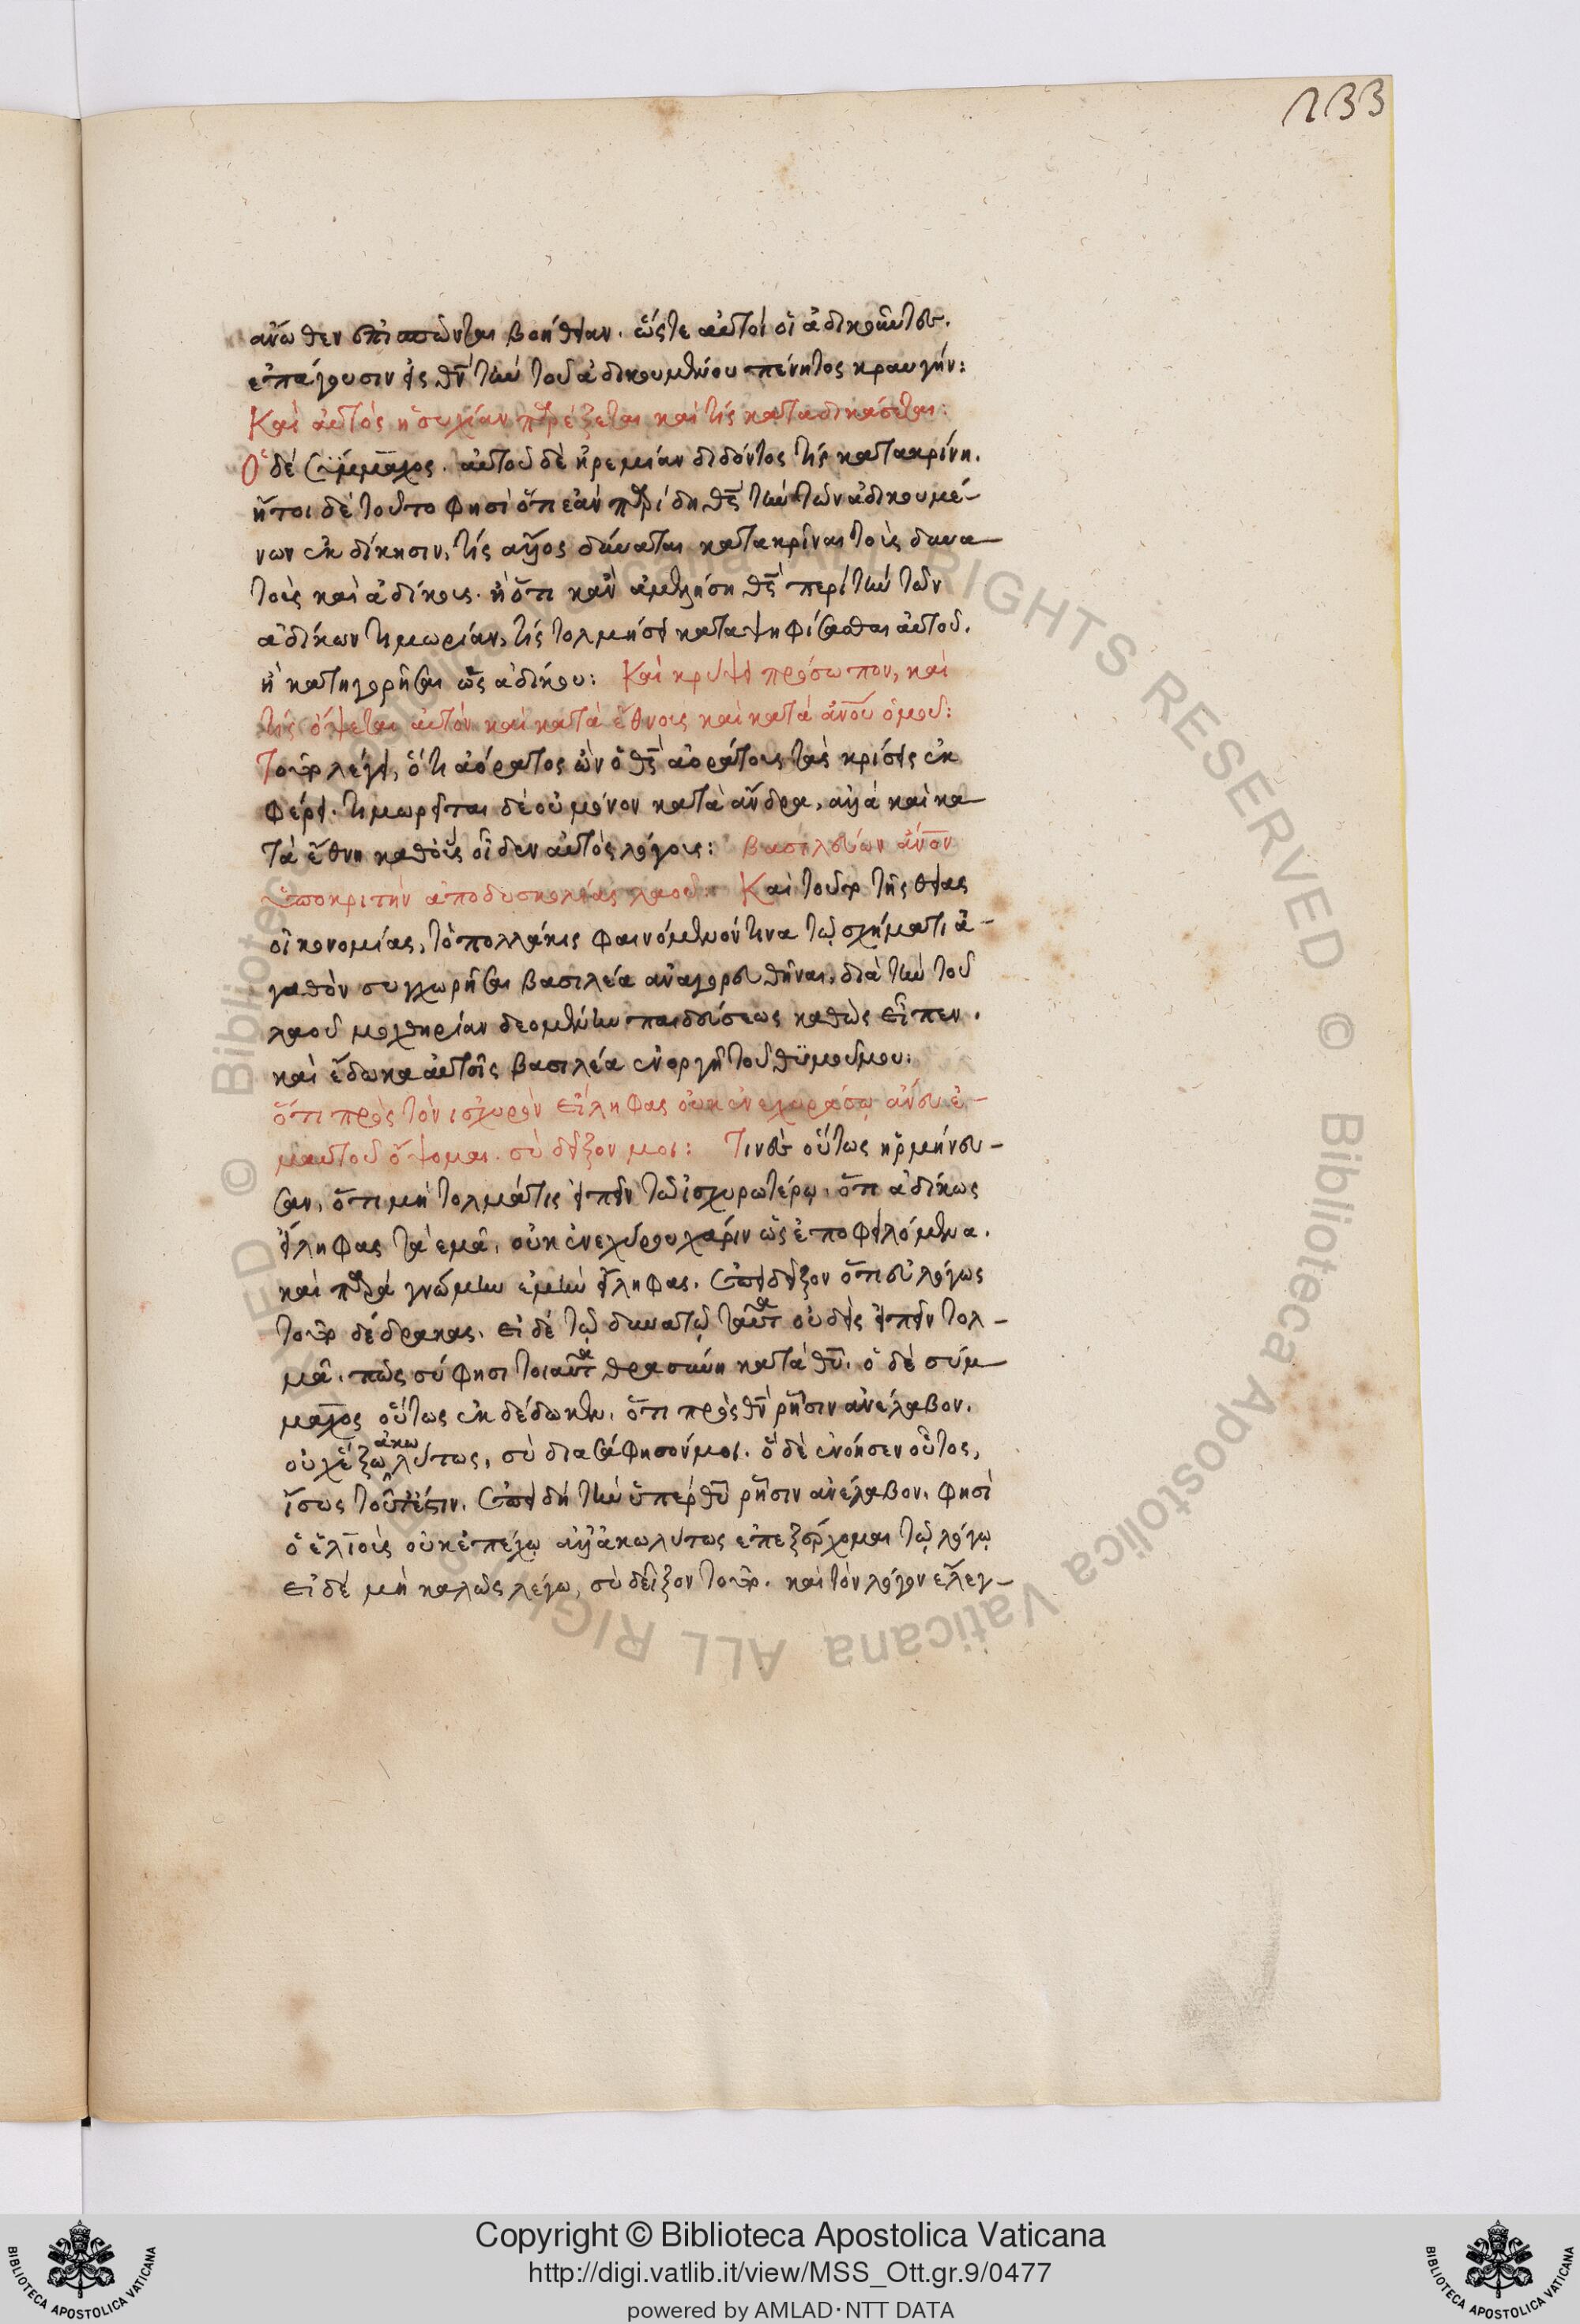 233
ἄνωθεν ἐπισπῶνται βοήθειαν. ὥστε αὐτοὶ οἱ ἀδικοῦντες.
ἐπάγουσιν εἰς θν̄ τὴν τοῦ ἀδικουμένου πένητος κραυγήν:
Καὶ αὐτὸς ἡσυχίαν παρέξεται καὶ τίς καταδικάσεται:
Ὁ δὲ Σύμμαχος. αὐτοῦ δὲ ἠρεμίαν διδόντος τίς κατακρίνῃ.
ἤτοι δὲ τοῦτο φησὶ ὅτι ἐὰν παρίδῃ θς̄ τὴν τῶν ἀδικουμέ-
νων ἐκδίκησιν, τίς ἄλλος δύναται κατακρῖναι τοὺς δυνα-
τοὺς καὶ ἀδίκους. ἢ ὅτι κἂν ἀμελήσῃ θς̄ περὶ τὴν τῶν
ἀδίκων τιμωρίαν, τίς τολμήσει καταψηφίσασθαι αὐτοῦ.
ἢ κατηγορῆσαι ὡς ἀδίκου: Καὶ κρύψει πρόσωπον, καὶ
τίς ὄψεται αὐτὸν καὶ κατὰ ἔθνους καὶ κατὰ ἀνοῦ ὁμοῦ:
Τοῦτο λέγει, ὅτι ἀόρατος ὢν ὁ θς̄ ἀοράτους τὰς κρίσεις ἐκ
φέρει. τιμωρεῖται δὲ οὐ μόνον κατὰ ἄνδρα, ἀλλὰ καὶ κα-
τὰ ἔθνη καθ' οὓς οἶδεν αὐτὸς λόγους: βασιλεύων ἄνον
ὑποκριτὴν ἀπὸ δυσκολίας λαοῦ: Καὶ τοῦτο τῆς θείας
οἰκονομίας, τὸ πολλάκις φαινόμενόν τινα τῷ σχήματι ἀ-
γαθὸν συγχωρῆσαι βασιλέα ἀναγορευθῆναι, διὰ τὴν τοῦ
λαοῦ μοχθηρίαν δεομένην παιδεύσεως καθὼς εἶπεν.
καὶ ἔδωκα αὐτοῖς βασιλέα ἐν ὀργῇ τοῦ θϋμοῦ μου:
ὅτι πρὸς τὸν ἰσχυρὸν εἴληφας οὐκ ἐνεχυράσω ἄνευ ἐ-
μαυτοῦ ὄψομαι. σὺ δεῖξον μοι: Τινὲς οὕτως ἡρμήνευ-
σαν, ὅτι μὴ τολμᾶ τις εἰπεῖν τῷ ἰσχυροτέρῳ. ὅτι ἀδίκως
εἴληφας τὰ ἐμὰ, οὐκ ἐνεχύρου χάριν ὡς ἐποφειλόμενα.
καὶ παρὰ γνώμην ἐμὴν εἴληφας. ὑπόδειξον ὅτι εὐλόγως
τοῦτο δέδρακας. εἰ δὲ τῷ δυνατῷ ταῦτα οὐδεὶς εἰπεῖν τολ-
μᾶ. πῶς σύ φησι τοιαῦτα θρασύνῃ κατὰ θῡ. ὁ δὲ σύμ-
μαχος οὕτως ἐκδέδωκεν. ὅτι πρὸς θν̄ ῥῆσιν ἀνέλαβον.
οὐχ ἕξω ἀκωλύτως, σὺ διασάφησόν μοι. ὃ δὲ ἐνόησεν οὗτος,
ἴσως τοῦτέστιν. ἐπειδὴ τὴν ὑπὲρ θῡ ῥῆσιν ἀνέλαβον. φησὶ
ὁ ἐλιοὺς οὐκ ἐπέχω ἀλλ' ἀκωλύτως ἐπεξέρχομαι τῷ λόγῳ
εἰ δὲ μὴ καλῶς λέγω, σὺ δεῖξον τοῦτο. καὶ τὸν λόγον ἔλεγ-
Copyright © Biblioteca Apostolica Vaticana
http://digi.vatlib.it/view/MSS_Ott.gr.9/0477
powered by AMLAD·NTT DATA